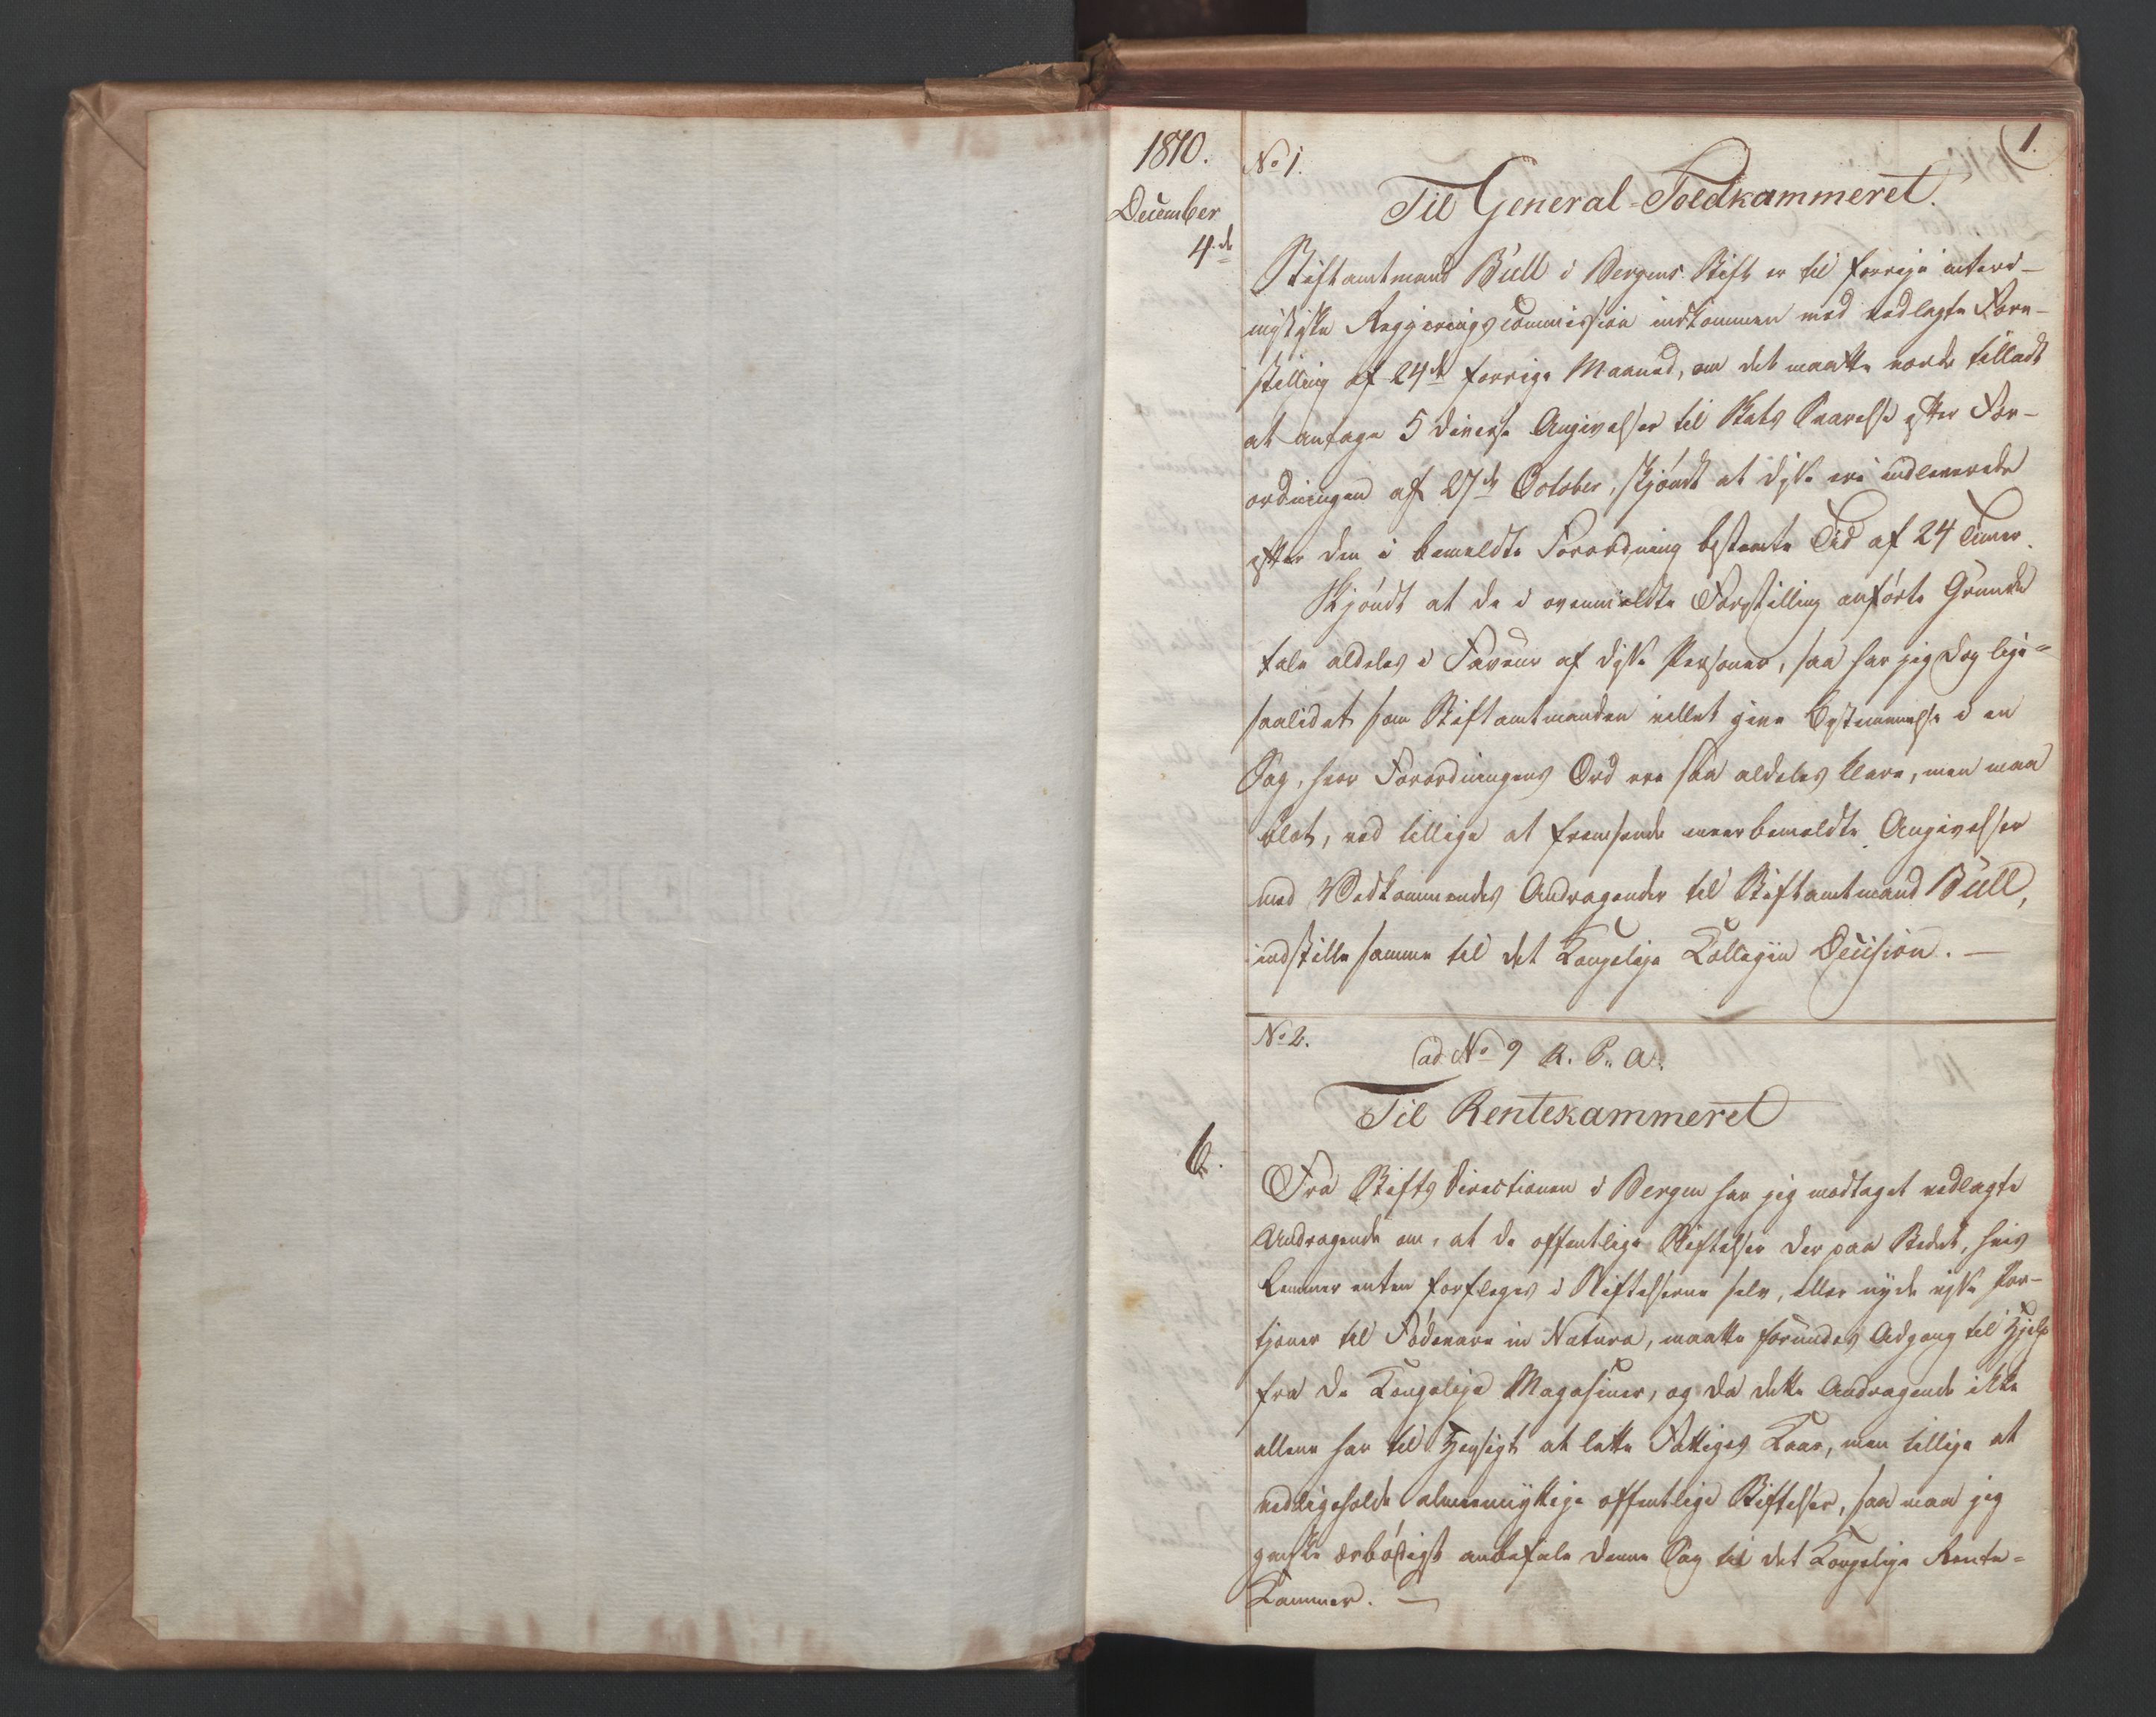 1810.
December
4de
1.
No 1.
Til General-Toldkammeret.
Stiftamtmand Bull i Bergens Stift er til forrige interi-
mistiske Regjeringscommission indkommen med vedlagte Fore-
stilling af 24de forrige Maaned, om det maatte vorde tilladt
at antage 5 diverse Angivelser til Skats Svarelse efter For-
ordningen af 27de October, skjöndt at disse ere indleverede
efter den i bemeldte Forordning bestemte Tid af 24 Timer.
Skjöndt at de i ovenmeldte Forestilling anförte Grunde
tale aldeles i Faveur af disse Personer, saa har jeg dog lige-
saalidet som Stiftamtmanden villet give Bestemmelse i en
Sag, hvor Forordningens Ord ere saa aldeles klare, men maa
blot, ved tillige at fremsende meerbemeldte Angivelser
med Vedkommendes Andragender til Stiftamtmand Bull,
indstille samme til det Kongelige Collegii Decision. —
No 2.
ad No 9 R. P. a.
Til Rentekammeret
6.
Fra Stifts Directionen i Bergen har jeg modtaget vedlagte
Andragende om, at de offentlige Stiftelser der paa Stedet, hvis
Lemmer enten forpleges i Stiftelserne selv, eller nyde visse Por-
tioner til Födevare in Natura, maatte forundes Adgang til Hjelp
fra de Kongelige Magasiner, og da dette Andragende ikke
allene har til Hensigt at lette Fattiges Kaar, men tillige at
vedligeholde almeennyttige offentlige Stiftelser, saa maa jeg
ganske ærbödigst anbefale denne Sag til det Kongelige Rente-
Kammer. —